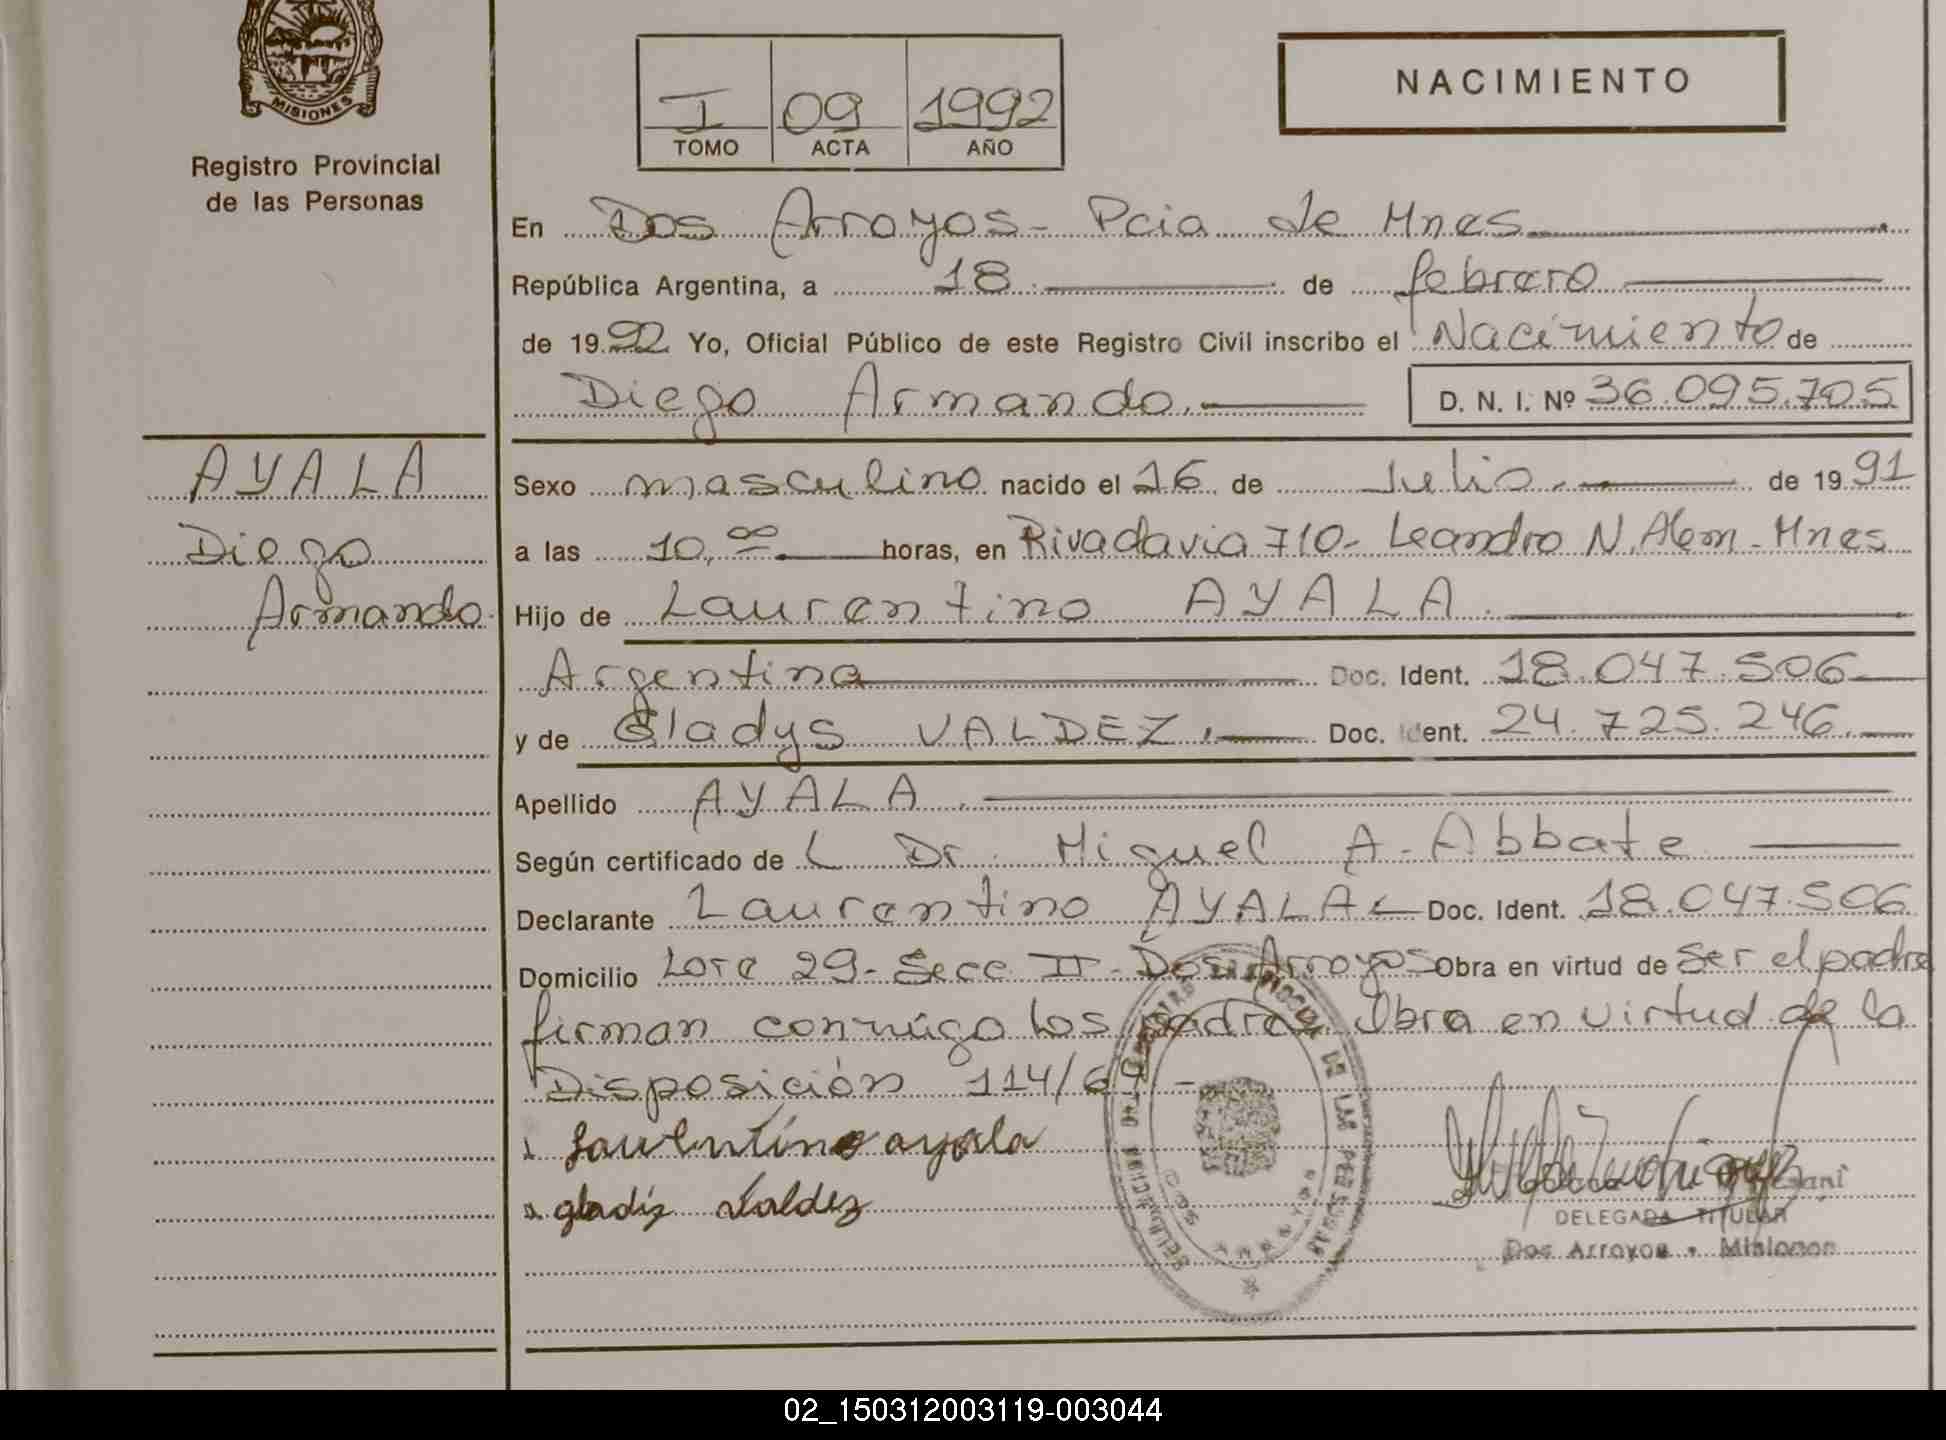 MISIONES
Registro Provincial
de las Personas
I 09 1992
TOMO ACTA AÑO
NACIMIENTO
En Dos Arroyos - Pcia de Mnes
República Argentina, a 18 de febrero
de 1992 Yo, Oficial Público de este Registro Civil inscribo el Nacimiento de
Diego Armando. D. N. I. Nº 36.095.705
AYALA
Diego
Armando.
Sexo masculino nacido el 16 de Julio. de 1991
a las 10,00 horas, en Rivadavia 710- Leandro N. Alem - Mnes
Hijo de Laurentino AYALA.
Argentina Doc. Ident. 18.047.506
y de Gladys VALDEZ. Doc. Ident. 24.725.246.
Apellido AYALA.
Según certificado de L Dr. Miguel A. Abbate
Declarante Laurentino AYALA Doc. Ident. 18.047.506
Domicilio Lote 29- Secc II - Dos Arroyos Obra en virtud de ser el padre
firman conmigo los padres Obra en virtud de la
Disposición 114/69 -
Laurentino ayala
gladiz Valdez
DELEGADA TITULAR
Dos Arroyos - Misiones
REGISTRO PROVINCIAL DE LAS PERSONAS
DOS ARROYOS
02_150312003119-003044